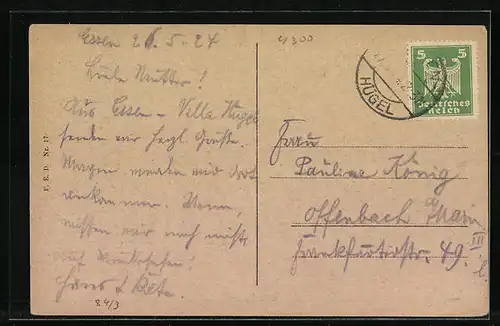 Essen 26.5.24
Liebe Mutter!
Aus Essen - Villa Hügel
senden wir herzl. Grüße.
Morgen werden wir dort
ankommen. Wann,
wissen wir noch nicht
Auf Wiedersehen!
Hans &
84/3
F. E. D. Nr. 17
4300
HÜGEL
5 5
Deutsches
Reich
Frau
Pauline König
Offenbach Main
Frankfurterstr. 49 III